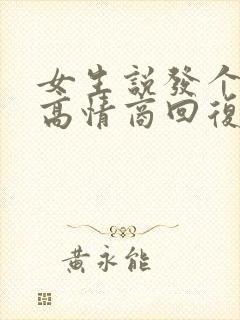 女生説發个
高情商回復
黃永能